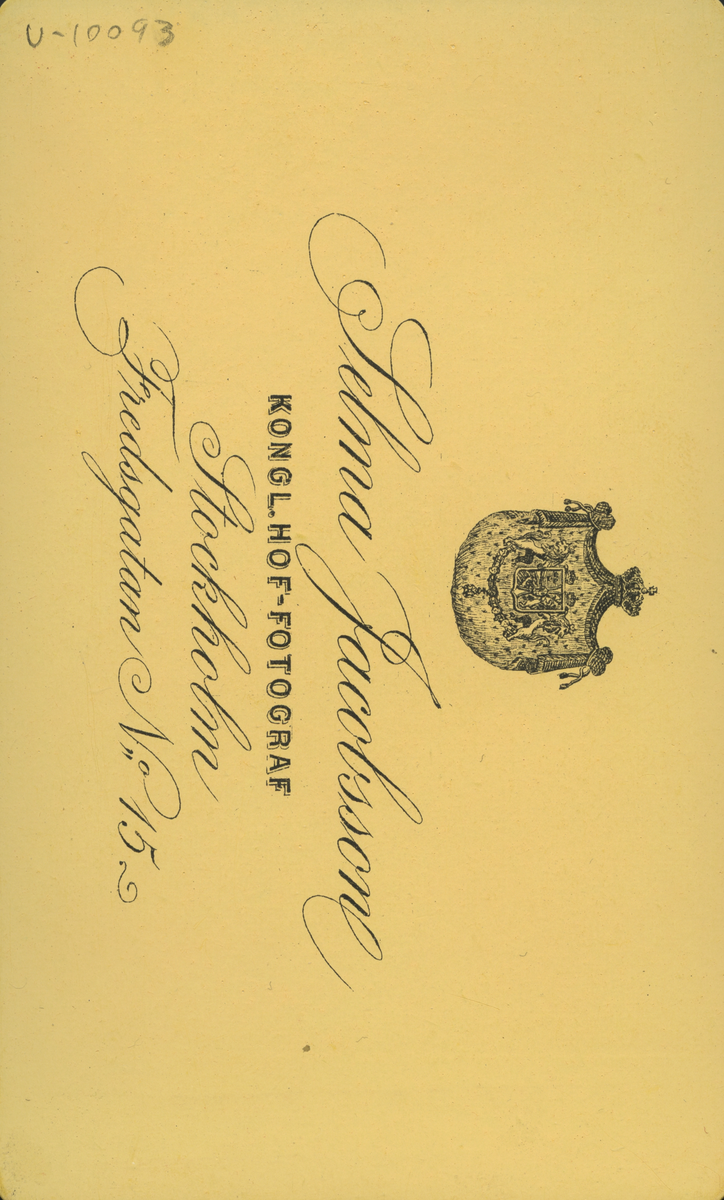 U-10093
Selma Jacobsson
KONGL. HOF-FOTOGRAF
Stockholm
Fredsgatan N,,o 15